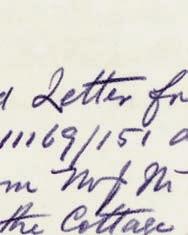 d Letter fr
11169/151 a
om Mr J
the Cottage